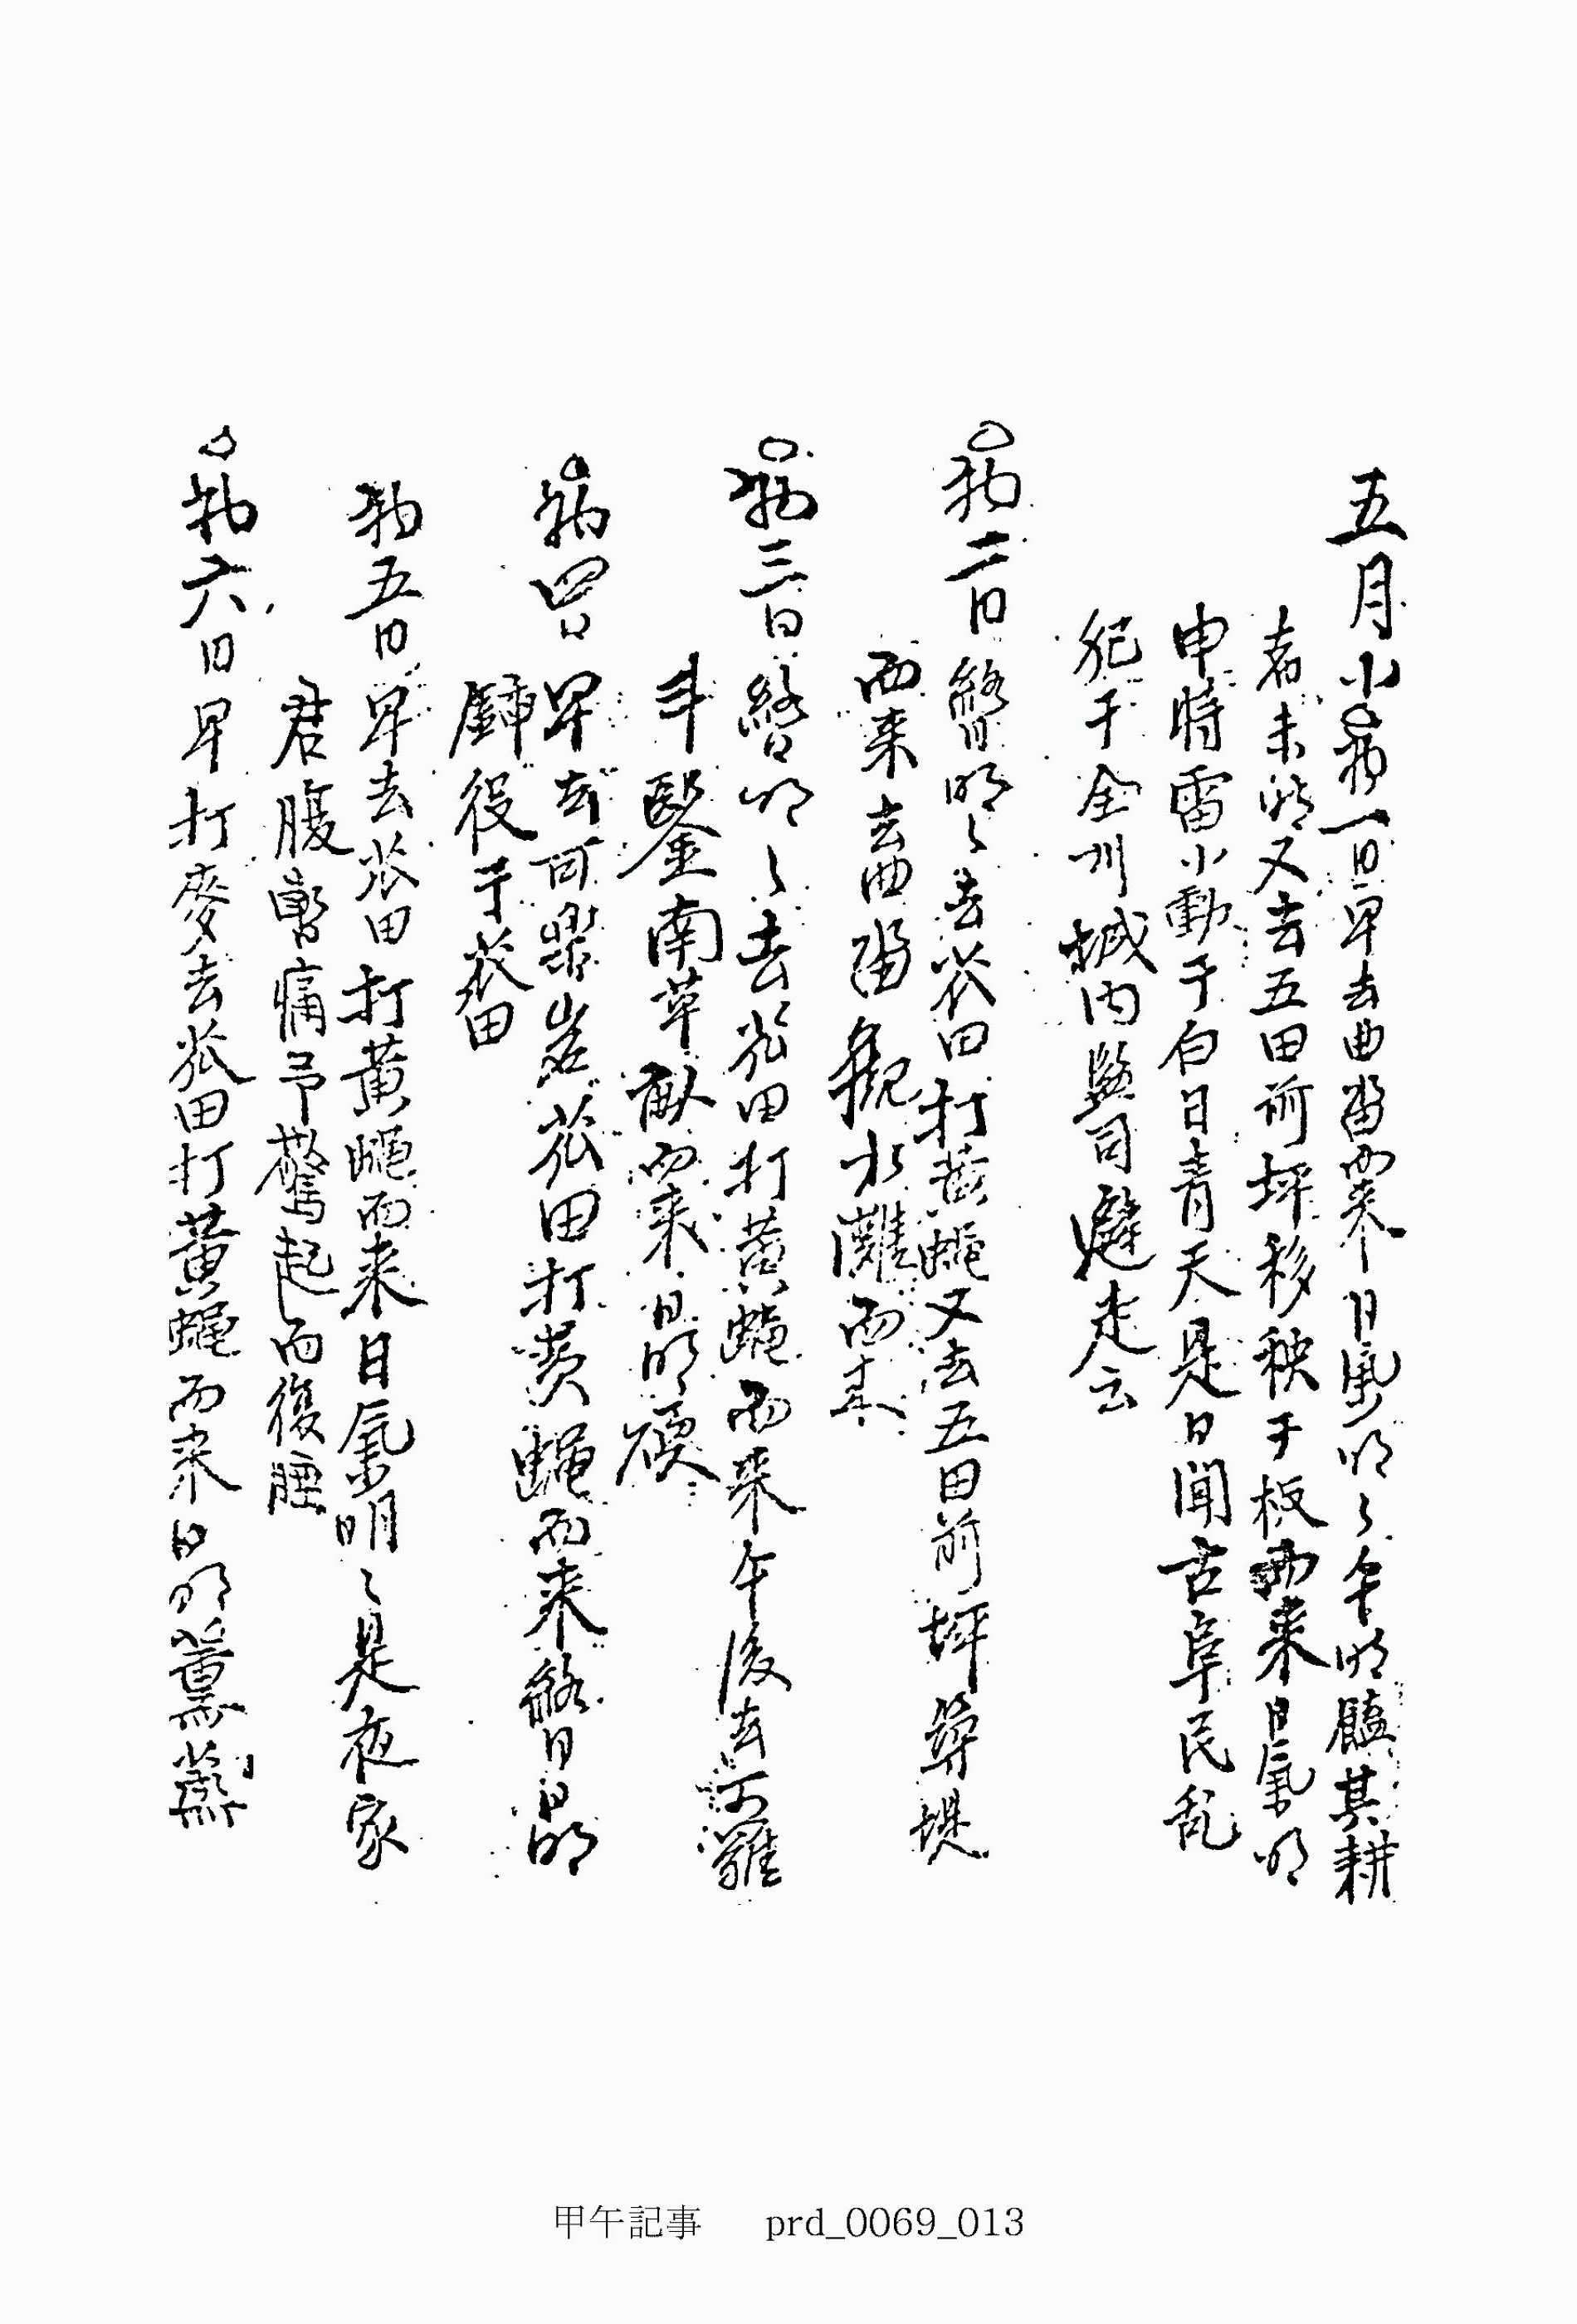 五月小初一日早去曲畓而來日氣明〻午時饁其耕
者未時又去五田前坪移秧于板而來日氣明
申時雷小動于白日青天是日聞古阜民乱
犯于全州城內監司避走云
初二日 明〻去苽田打黃蠅又去五田前坪築堤
而來去曲畓觀水灘而來
初三日 明〻去苽田打黃蠅而來午後去
斗 南草 而來日明
初四日早去 岩苽田打黃蠅而來 日明
歸役于苽田
初五日早去苽田打黃蠅而來日氣明〻是夜家
君腹暫痛予驚起而復睡
初六日早打麥去苽田打黃蠅而來日明薰蒸
甲午記事 prd_0069_013